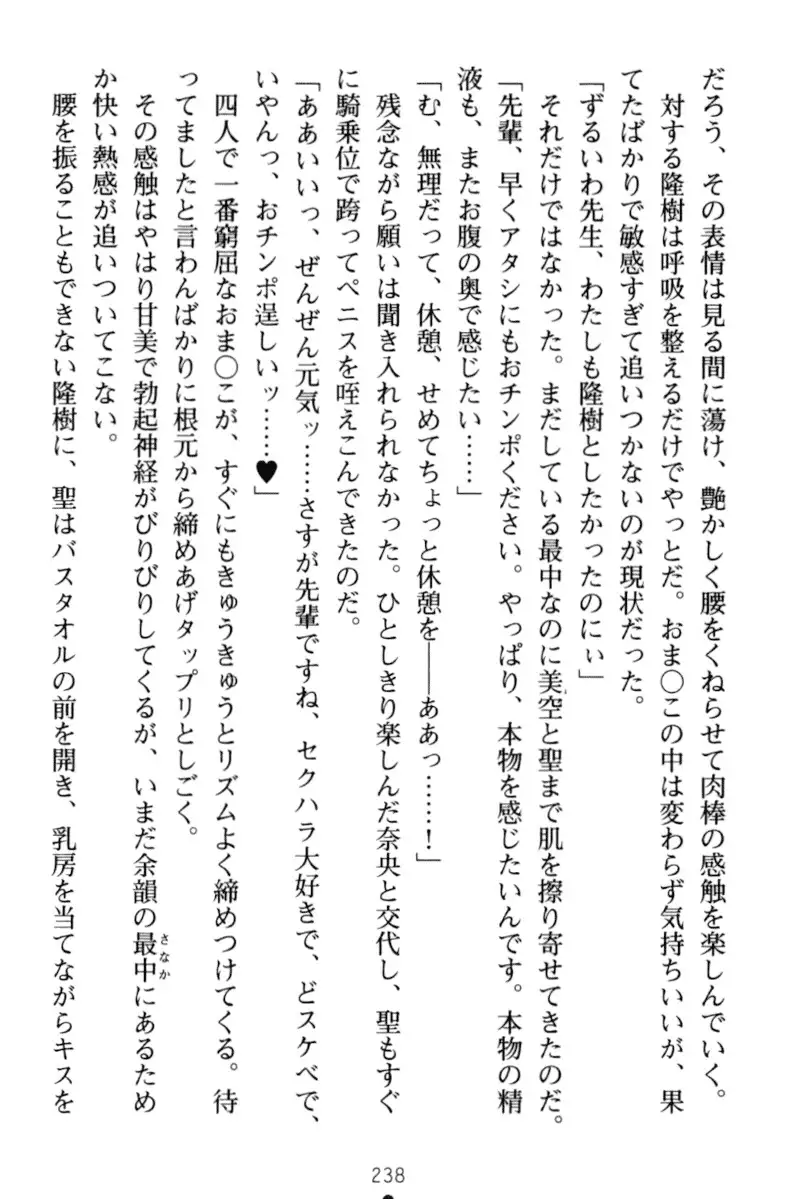 だろう、その表情は見る間に蕩け、艶かしく腰をくねらせて肉棒の感触を楽しんでいく。
対する隆樹は呼吸を整えるだけでやっとだ。おま〇この中は変わらず気持ちいいが、果
てたばかりで敏感すぎて追いつかないのが現状だった。
「ずるいわ先生、わたしも隆樹としたかったのにぃ」
それだけではなかった。まだしている最中なのに美空と聖まで肌を擦り寄せてきたのだ。
「先輩、早くアタシにもおチンポください。やっぱり、本物を感じたいんです。本物の精
液も、またお腹の奥で感じたい……」
「む、無理だって、休憩、せめてちょっと休憩を――ああっ……！」
残念ながら願いは聞き入れられなかった。ひとしきり楽しんだ奈央と交代し、聖もすぐ
に騎乗位で跨ってペニスを咥えこんできたのだ。
「ああいいっ、ぜんぜん元気ッ……さすが先輩ですね、セクハラ大好きで、どスケベで、
いやんっ、おチンポ逞しいッ……♥」
四人で一番窮屈なおま〇こが、すぐにもきゅうきゅうとリズムよく締めつけてくる。待
ってましたと言わんばかりに根元から締めあげタップリとしごく。
その感触はやはり甘美で勃起神経がびりびりしてくるが、いまだ余韻の最中にあるため
さなか
か快い熱感が追いついてこない。
腰を振ることもできない隆樹に、聖はバスタオルの前を開き、乳房を当てながらキスを
238